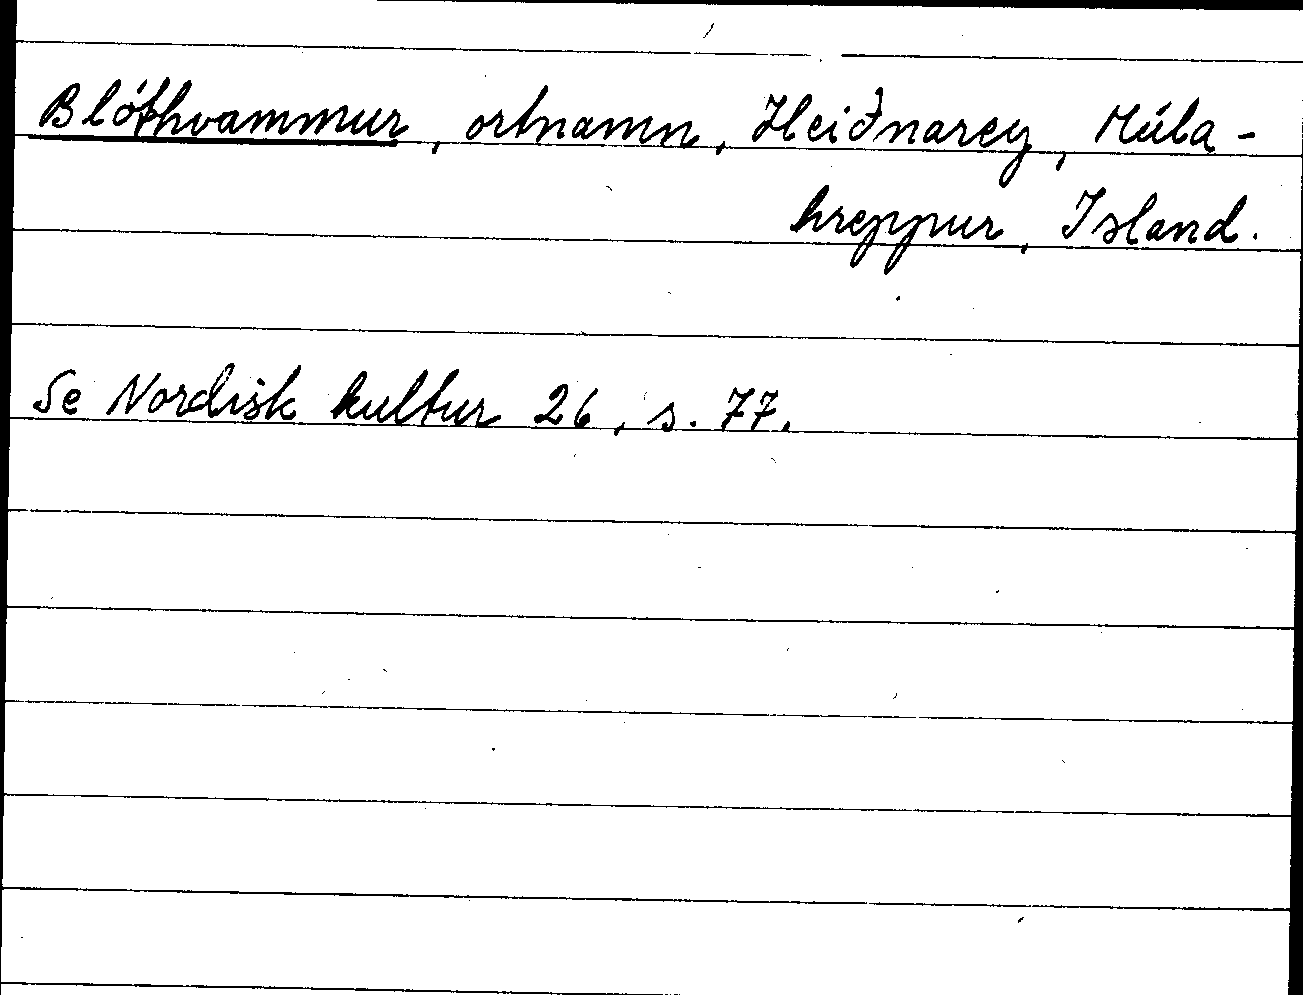 Blóthvammur, ortnamn, Heiðnarey, Múla-
hreppur, Island.
Se Nordisk kultur 26, s. 77.